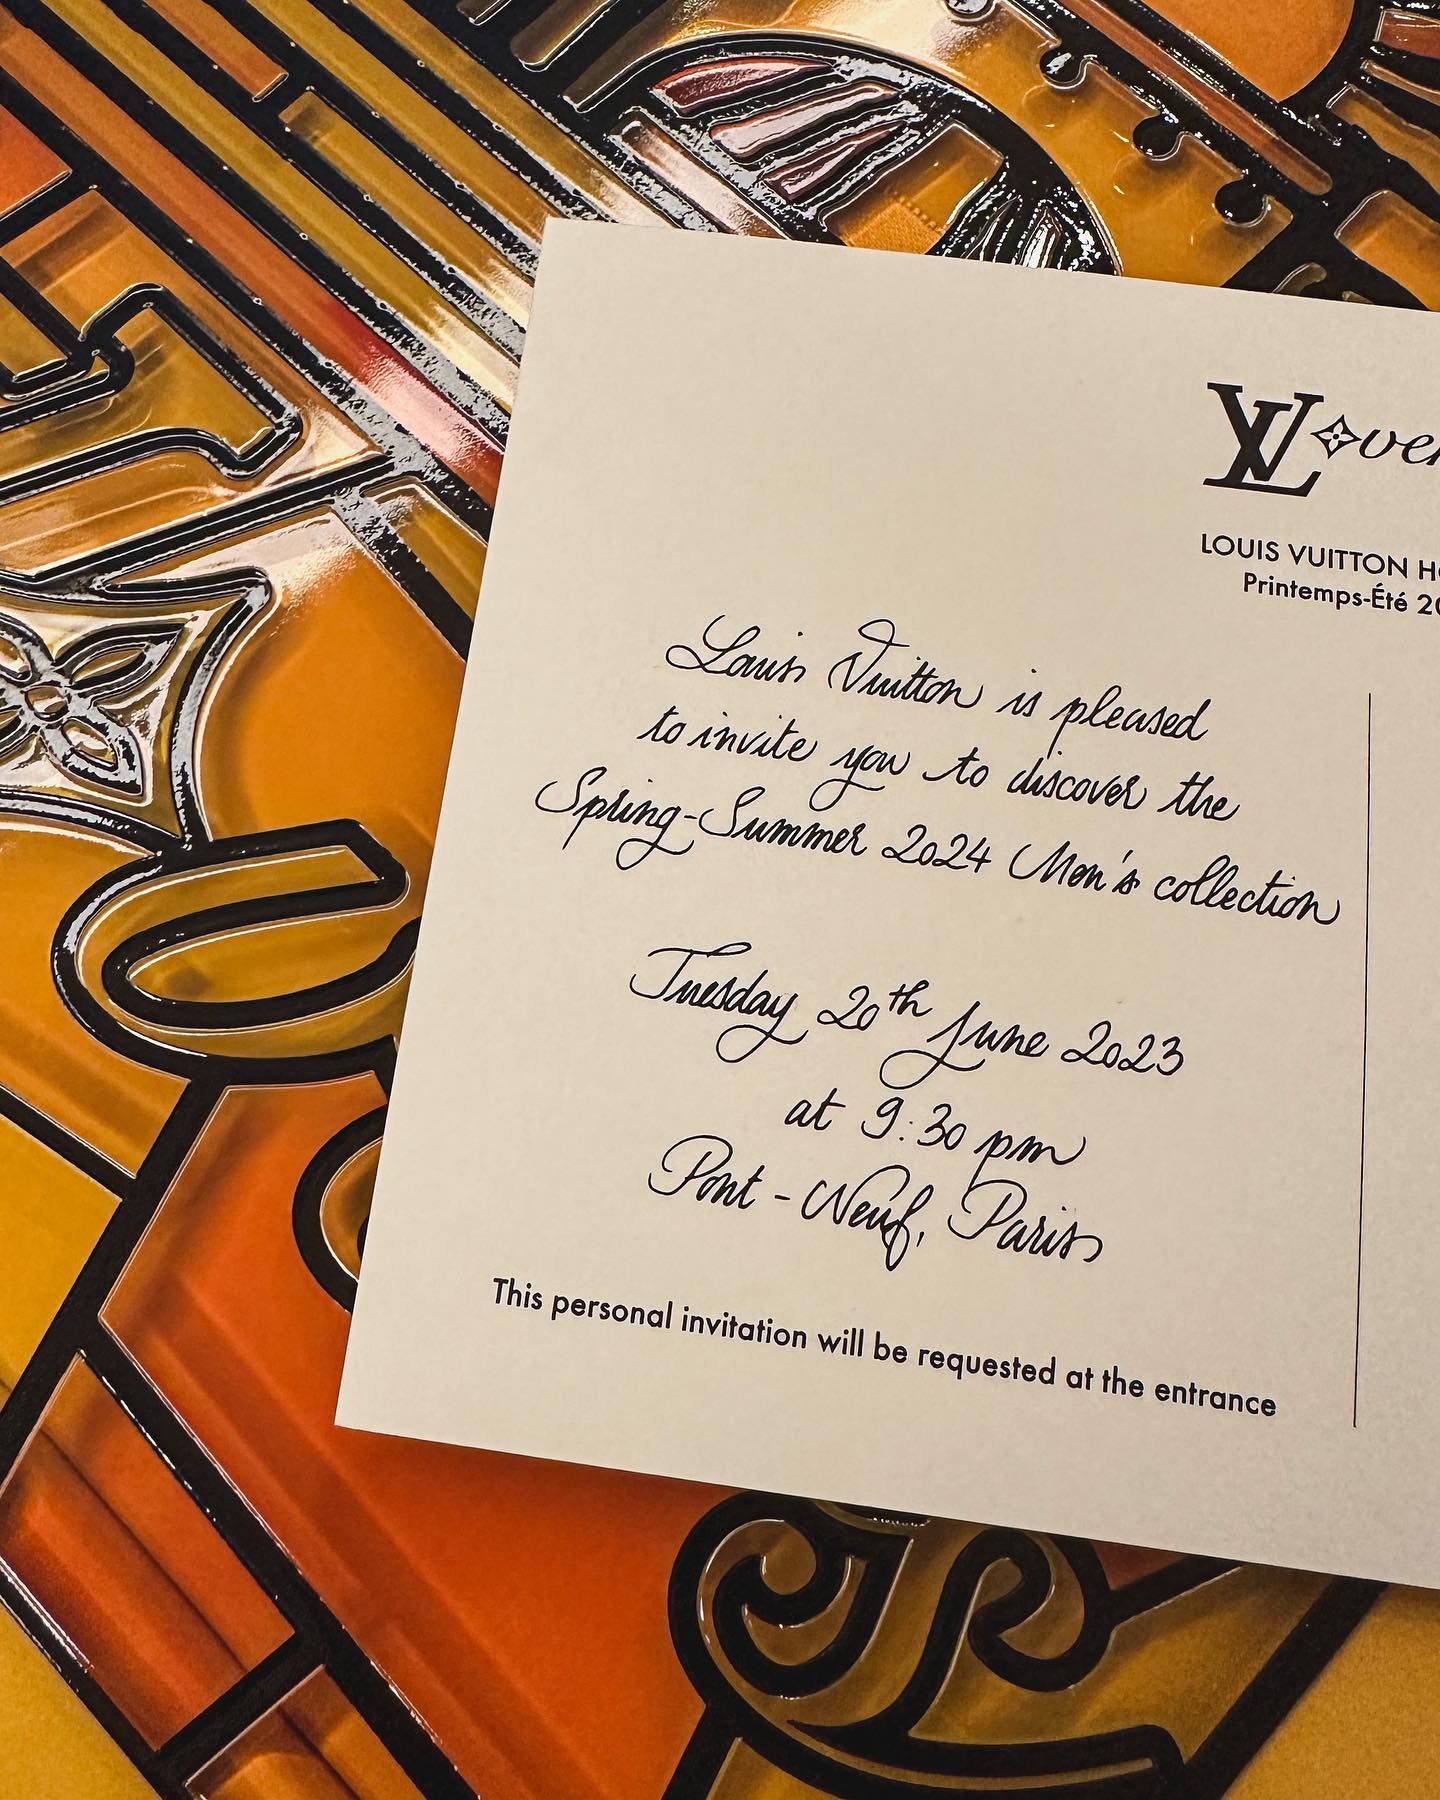 LV
LOUIS VUITTON
Printemps-Été
Louis Vuitton is pleased
to invite you to discover the
Spring-Summer 2024 Men's collection
Tuesday 20th June 2023
at 9:30 pm
Pont-Neuf, Paris
This personal invitation will be requested at the entrance